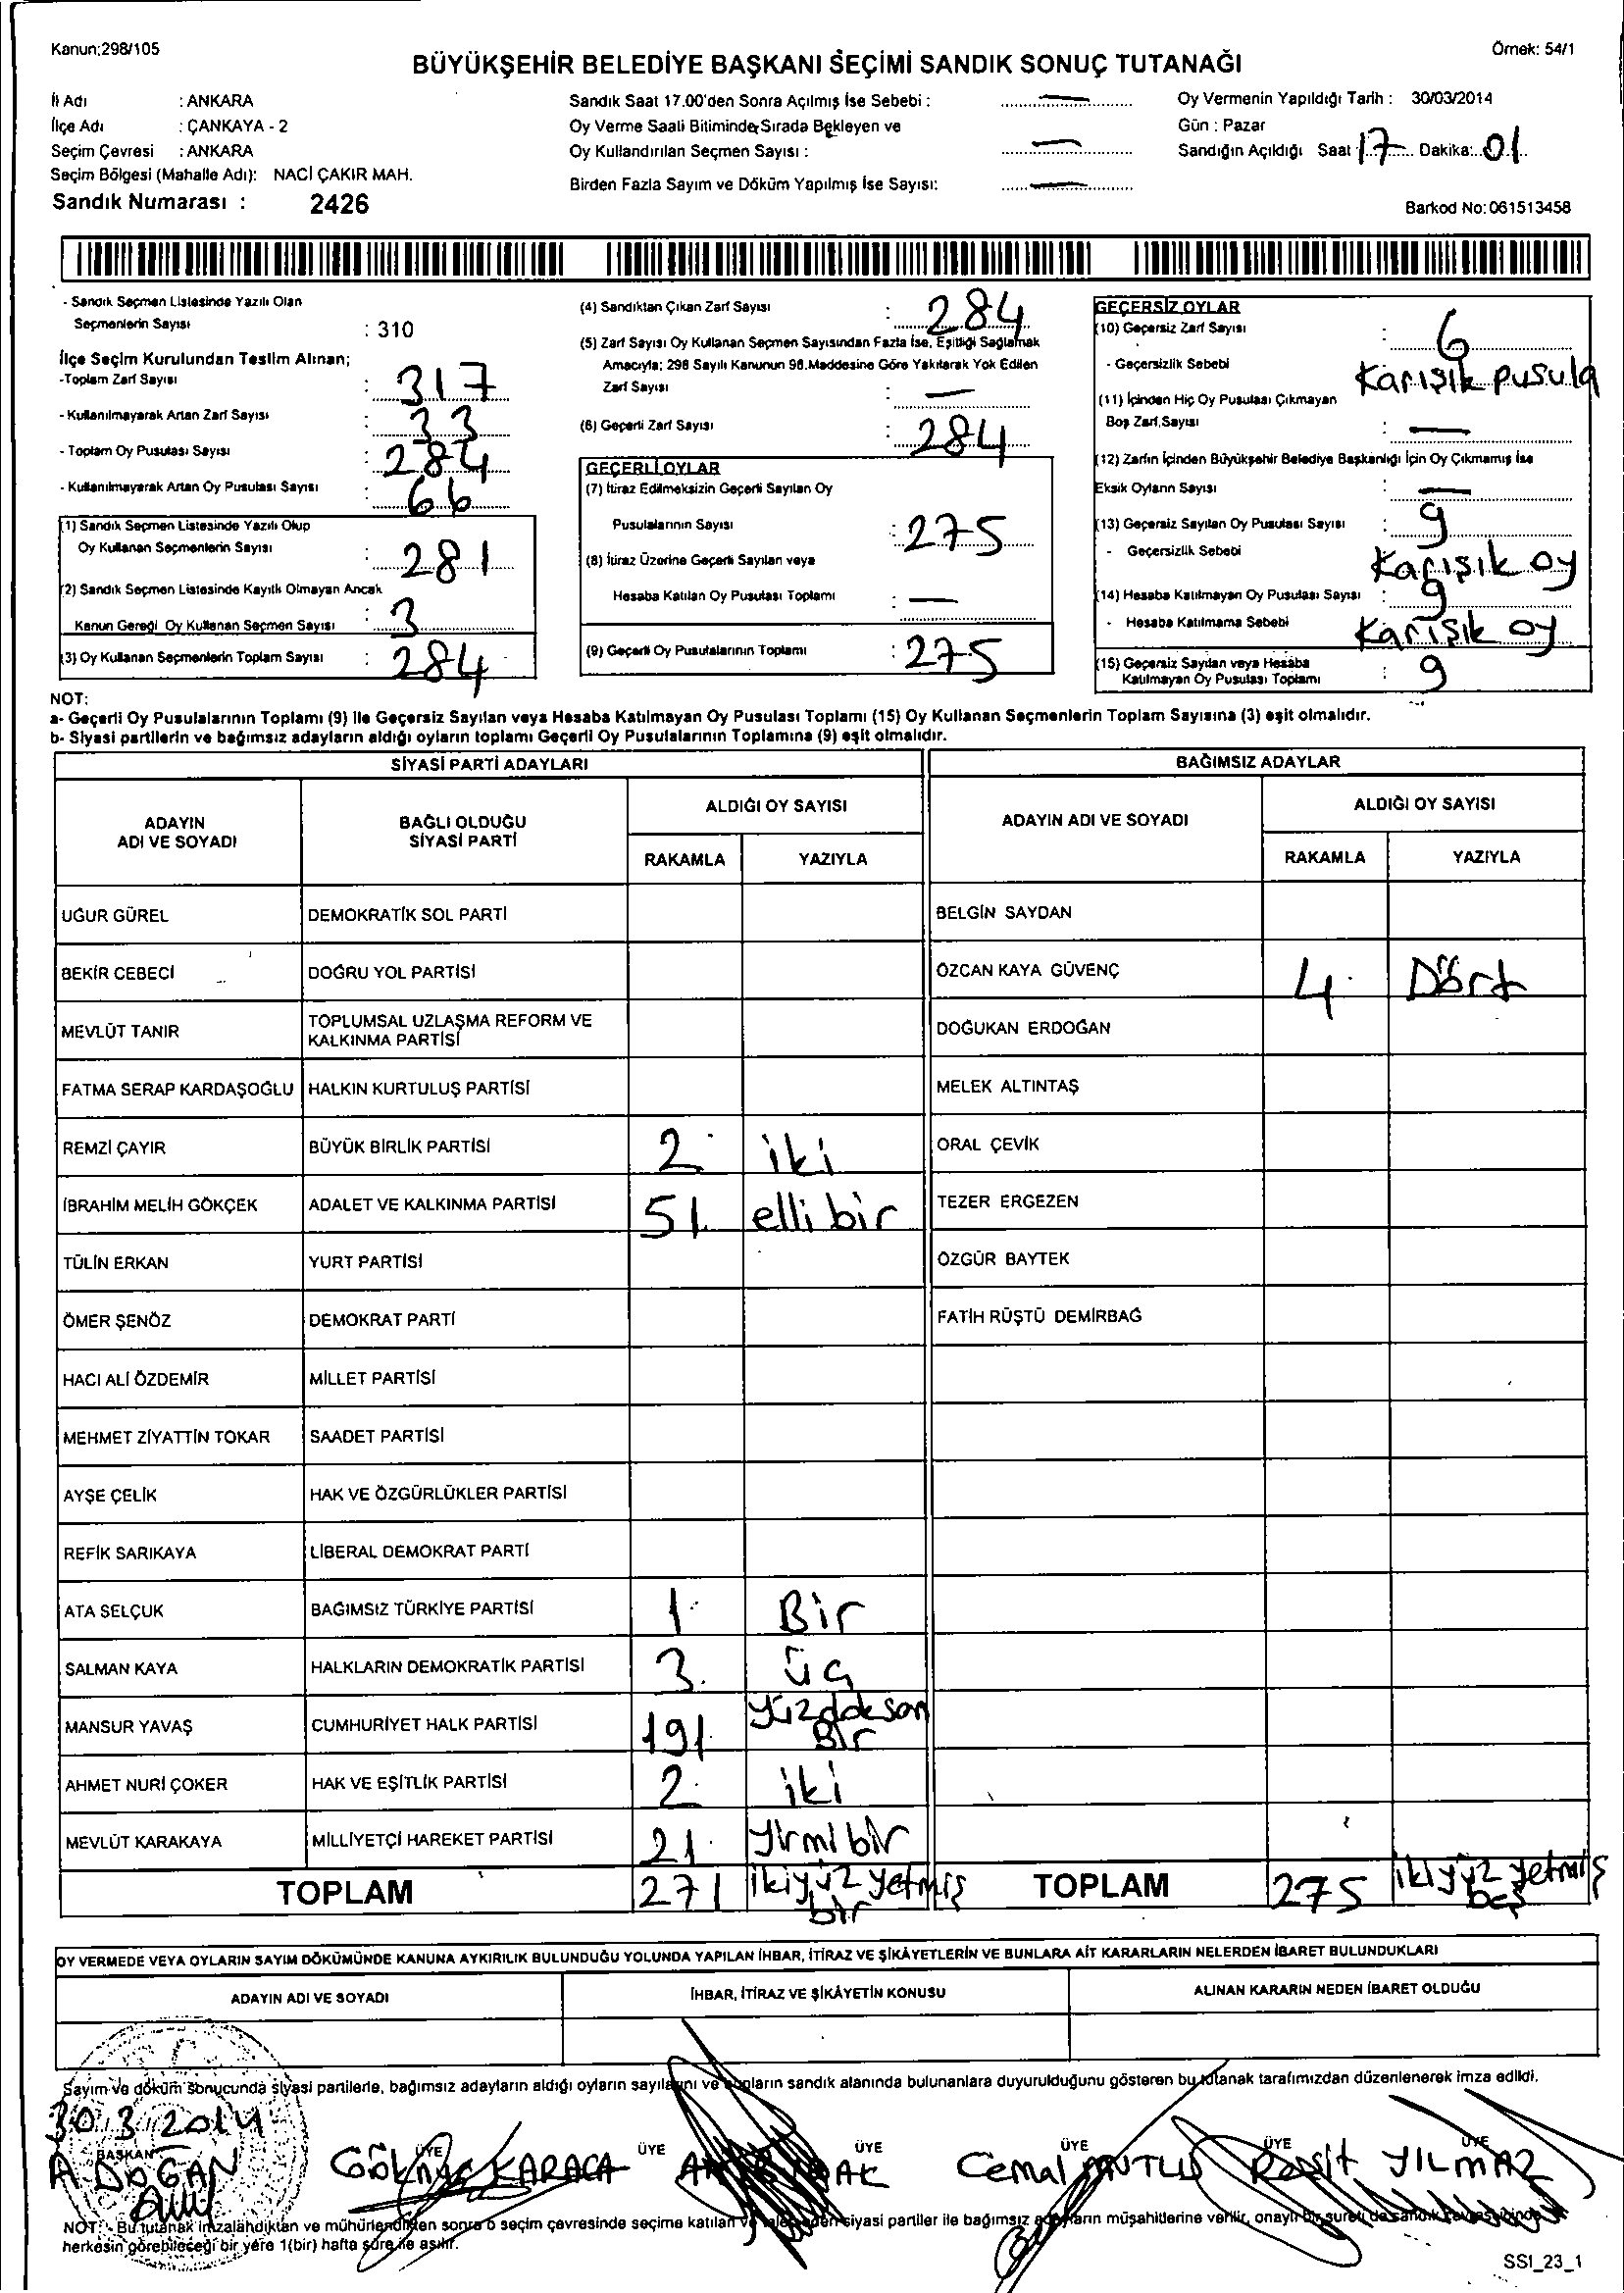 Kanun;298/105
Örnek: 54/1
BÜYÜKŞEHİR BELEDİYE BAŞKANI SEÇİMİ SANDIK SONUÇ TUTANAĞI
İl Adı : ANKARA
İlçe Adı : ÇANKAYA - 2
Seçim Çevresi : ANKARA
Seçim Bölgesi (Mahalle Adı): NACİ ÇAKIR MAH.
Sandık Numarası : 2426
Sandık Saat 17.00'den Sonra Açılmış İse Sebebi : —
Oy Verme Saati Bitiminde Sırada Bekleyen ve
Oy Kullandırılan Seçmen Sayısı : —
Birden Fazla Sayım ve Döküm Yapılmış İse Sayısı: —
Oy Vermenin Yapıldığı Tarih : 30/03/2014
Gün : Pazar
Sandığın Açıldığı Saat 17 Dakika: 01
Barkod No: 061513458
- Sandık Seçmen Listesinde Yazılı Olan
Seçmenlerin Sayısı : 310
İlçe Seçim Kurulundan Teslim Alınan;
-Toplam Zarf Sayısı : 317
- Kullanılmayarak Artan Zarf Sayısı : 33
- Toplam Oy Pusulası Sayısı : 284
- Kullanılmayarak Artan Oy Pusulası Sayısı : 66
(1) Sandık Seçmen Listesinde Yazılı Olup
Oy Kullanan Seçmenlerin Sayısı : 281
(2) Sandık Seçmen Listesinde Kayıtlı Olmayan Ancak
Kanun Gereği Oy Kullanan Seçmen Sayısı : 3
(3) Oy Kullanan Seçmenlerin Toplam Sayısı : 284
(4) Sandıktan Çıkan Zarf Sayısı : 284
(5) Zarf Sayısı Oy Kullanan Seçmen Sayısından Fazla İse, Eşitliği Sağlamak
Amacıyla; 298 Sayılı Kanunun 98.Maddesine Göre Yakılarak Yok Edilen
Zarf Sayısı : —
(6) Geçerli Zarf Sayısı : 284
GEÇERLİ OYLAR
(7) İtiraz Edilmeksizin Geçerli Sayılan Oy
Pusulalarının Sayısı : 275
(8) İtiraz Üzerine Geçerli Sayılan veya
Hesaba Katılan Oy Pusulası Toplamı : —
(9) Geçerli Oy Pusulalarının Toplamı : 275
GEÇERSİZ OYLAR
(10) Geçersiz Zarf Sayısı : 6
- Geçersizlik Sebebi Karışık pusula
(11) İçinden Hiç Oy Pusulası Çıkmayan
Boş Zarf Sayısı : —
(12) Zarfın İçinden Büyükşehir Belediye Başkanlığı İçin Oy Çıkmamış İse
Eksik Oyların Sayısı : —
(13) Geçersiz Sayılan Oy Pusulası Sayısı : 9
- Geçersizlik Sebebi Karışık oy
(14) Hesaba Katılmayan Oy Pusulası Sayısı : 9
- Hesaba Katılmama Sebebi Karışık oy
(15) Geçersiz Sayılan veya Hesaba
Katılmayan Oy Pusulası Toplamı : 9
NOT:
a- Geçerli Oy Pusulalarının Toplamı (9) ile Geçersiz Sayılan veya Hesaba Katılmayan Oy Pusulası Toplamı (15) Oy Kullanan Seçmenlerin Toplam Sayısına (3) eşit olmalıdır.
b- Siyasi partilerin ve bağımsız adayların aldığı oyların toplamı Geçerli Oy Pusulalarının Toplamına (9) eşit olmalıdır.
SİYASİ PARTİ ADAYLARI
BAĞIMSIZ ADAYLAR
ADAYIN
ADI VE SOYADI
BAĞLI OLDUĞU
SİYASİ PARTİ
ALDIĞI OY SAYISI
RAKAMLA YAZIYLA
ADAYIN ADI VE SOYADI
ALDIĞI OY SAYISI
RAKAMLA YAZIYLA
UĞUR GÜREL DEMOKRATİK SOL PARTİ BELGİN SAYDAN
BEKİR CEBECİ DOĞRU YOL PARTİSİ ÖZCAN KAYA GÜVENÇ 4 Dört
MEVLÜT TANIR TOPLUMSAL UZLAŞMA REFORM VE
KALKINMA PARTİSİ DOĞUKAN ERDOĞAN
FATMA SERAP KARDAŞOĞLU HALKIN KURTULUŞ PARTİSİ MELEK ALTINTAŞ
REMZİ ÇAYIR BÜYÜK BİRLİK PARTİSİ 2 iki ORAL ÇEVİK
İBRAHİM MELİH GÖKÇEK ADALET VE KALKINMA PARTİSİ 51 elli bir TEZER ERGEZEN
TÜLİN ERKAN YURT PARTİSİ ÖZGÜR BAYTEK
ÖMER ŞENÖZ DEMOKRAT PARTİ FATİH RÜŞTÜ DEMİRBAĞ
HACI ALİ ÖZDEMİR MİLLET PARTİSİ
MEHMET ZİYATTİN TOKAR SAADET PARTİSİ
AYŞE ÇELİK HAK VE ÖZGÜRLÜKLER PARTİSİ
REFİK SARIKAYA LİBERAL DEMOKRAT PARTİ
ATA SELÇUK BAĞIMSIZ TÜRKİYE PARTİSİ 1 Bir
SALMAN KAYA HALKLARIN DEMOKRATİK PARTİSİ 3 üç
MANSUR YAVAŞ CUMHURİYET HALK PARTİSİ 191 Yüzdoksan
Bir
AHMET NURİ ÇOKER HAK VE EŞİTLİK PARTİSİ 2 iki
MEVLÜT KARAKAYA MİLLİYETÇİ HAREKET PARTİSİ 21 Yirmi bir
TOPLAM 271 ikiyüz yetmiş
bir
TOPLAM 275 ikiyüz yetmiş
beş
OY VERMEDE VEYA OYLARIN SAYIM DÖKÜMÜNDE KANUNA AYKIRILIK BULUNDUĞU YOLUNDA YAPILAN İHBAR, İTİRAZ VE ŞİKÂYETLERİN VE BUNLARA AİT KARARLARIN NELERDEN İBARET BULUNDUKLARI
ADAYIN ADI VE SOYADI İHBAR, İTİRAZ VE ŞİKÂYETİN KONUSU ALINAN KARARIN NEDEN İBARET OLDUĞU
Sayım ve döküm sonucunda siyasi partilerle, bağımsız adayların aldığı oyların sayılarını ve bunların sandık alanında bulunanlara duyurulduğunu gösteren bu tutanak tarafımızdan düzenlenerek imza edildi.
30.3.2014
BAŞKAN ÜYE ÜYE ÜYE ÜYE ÜYE ÜYE
A. DOĞAN KARACA Cemal MUTLU Raşit YILMAZ
NOT: - Bu tutanak imzalandıktan ve mühürlendikten sonra o seçim çevresinde seçime katılan siyasi partiler ile bağımsız adayların müşahitlerine verilir, onaylı bir sureti de sandık
herkesin görebileceği bir yere 1(bir) hafta süre ile asılır.
SSI_23_1